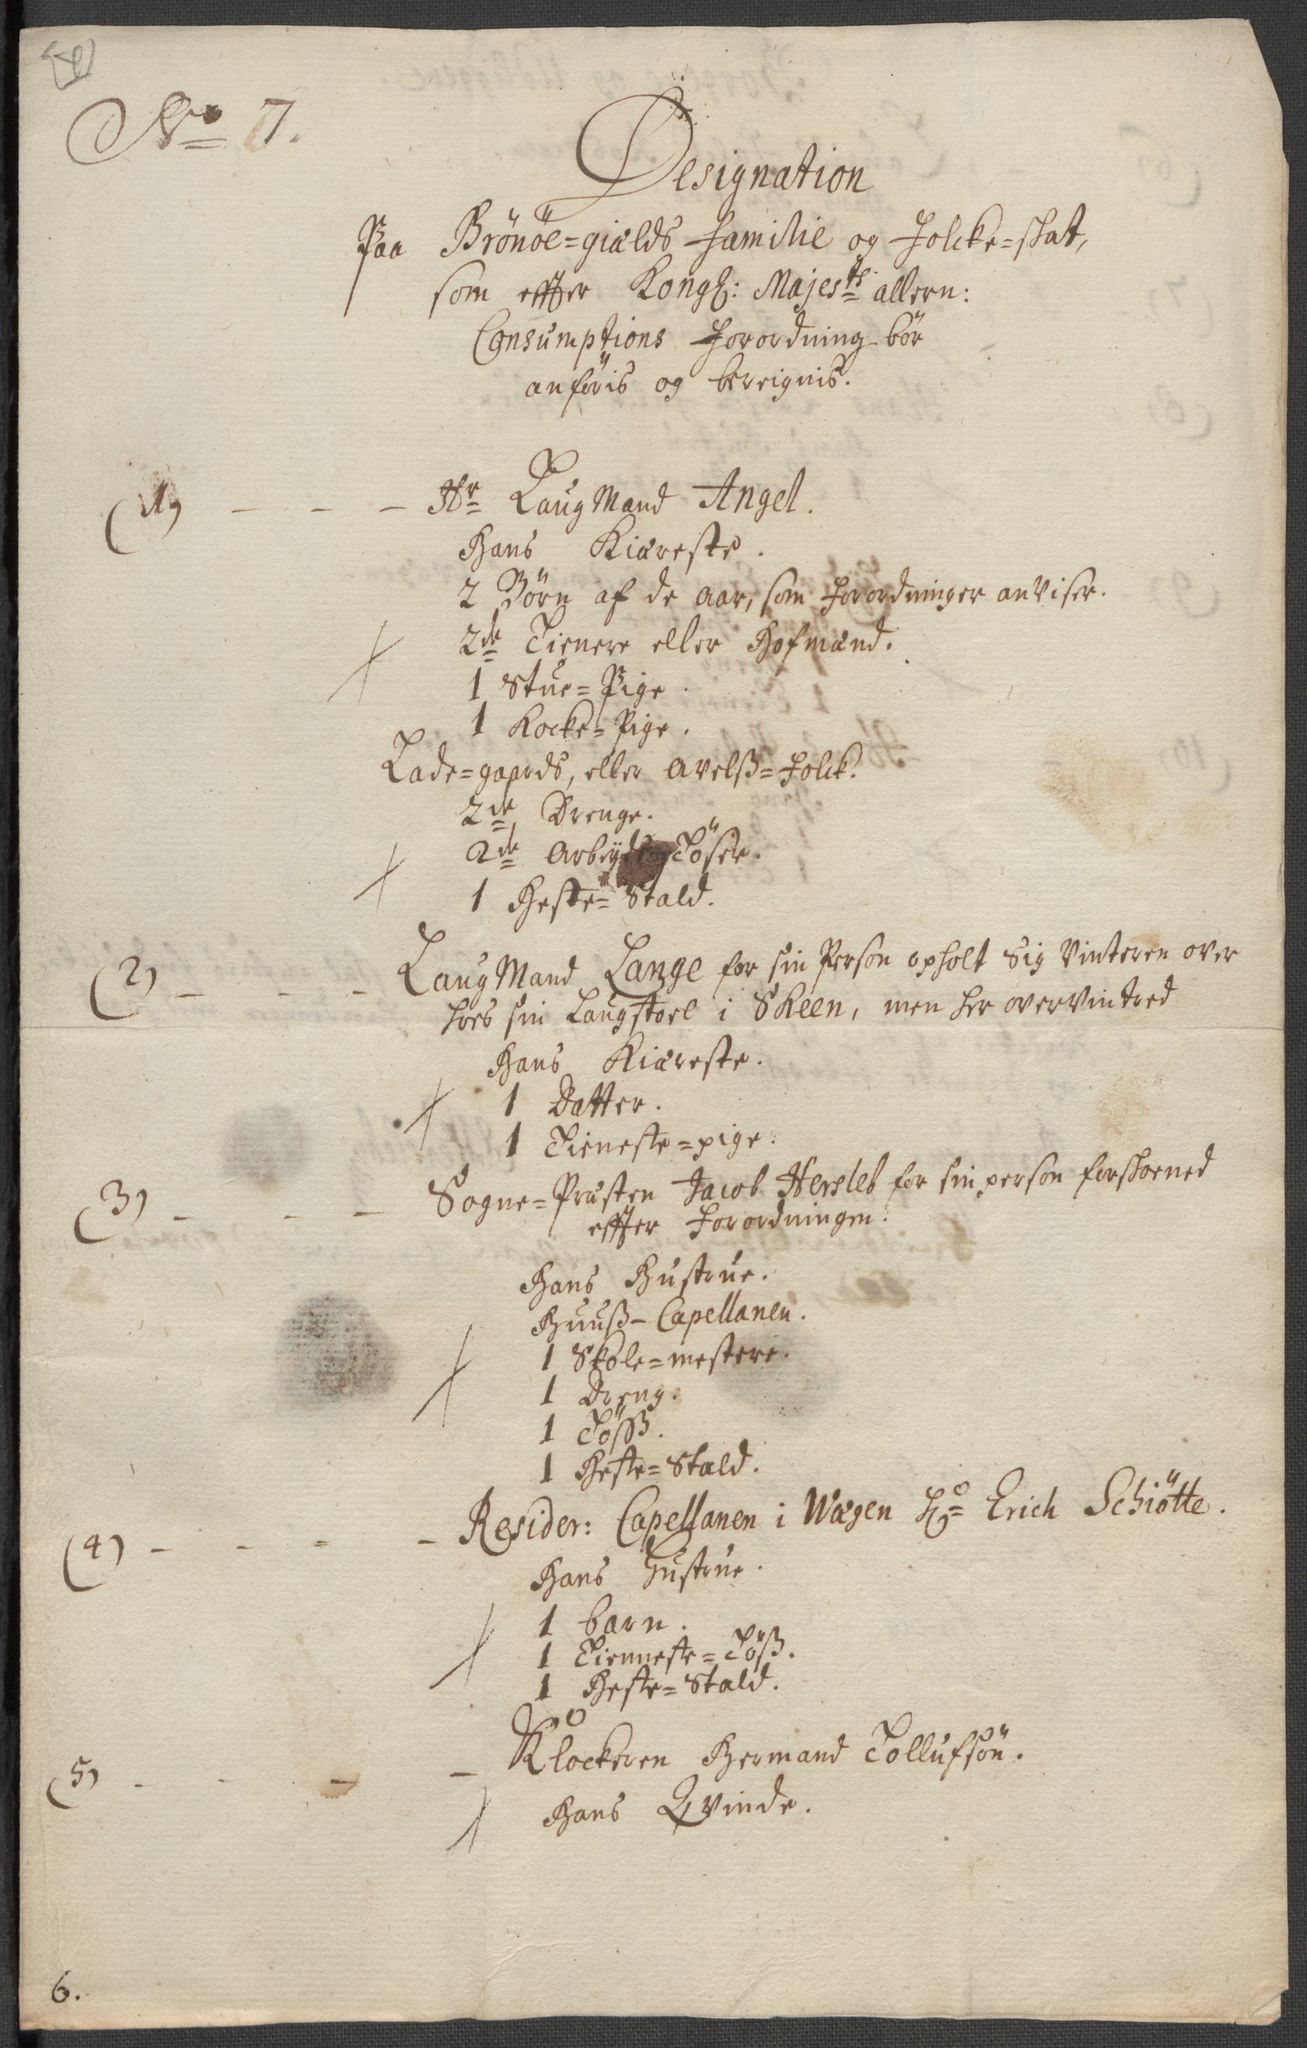 No 7.
Designation
Paa Brönöe=gields Familie og Folcke=skat,
som effter Kongl: Majests allern:
Consumptions Forordning bör
anföris og bereignis.
(1) - - - Hr LaugMand Angel.
Hans Kiæreste.
2 Börn af de aar, som Forordninger anviser.
2de Tienere eller Hofmænd.
1 Stue=Pige.
1 Kocke=Pige.
Lade=gaards, eller Avelß=Folck.
2de Drenge.
2de Arbeyds Töser.
1 Heste=Stald.
(2) - - - LaugMand Lange for sin Person opholt Sig Vinteren over
hoes sin Laugstoel i Skeen, men her overvintred
Hans Kiæreste.
1 Datter.
1 Tieneste=pige.
(3) - - - Sogne=Præsten Jacob Hersleb for sin person forskoened
effter Forordningen.
Hans Hustrue.
Huuß-Capellanen.
1 Skole=mester.
1 Dreng.
1 Töß.
1 Heste=Stald.
(4) - - - - Resider: Capellanen i Wægen Hr Erich Schiötte.
Hans Hustrue.
1 barn.
1 Tienneste=Töß.
1 Heste=Stald.
(5) - - - - Klockeren Hermand Tollufsön.
Hans Qvinde.
6.